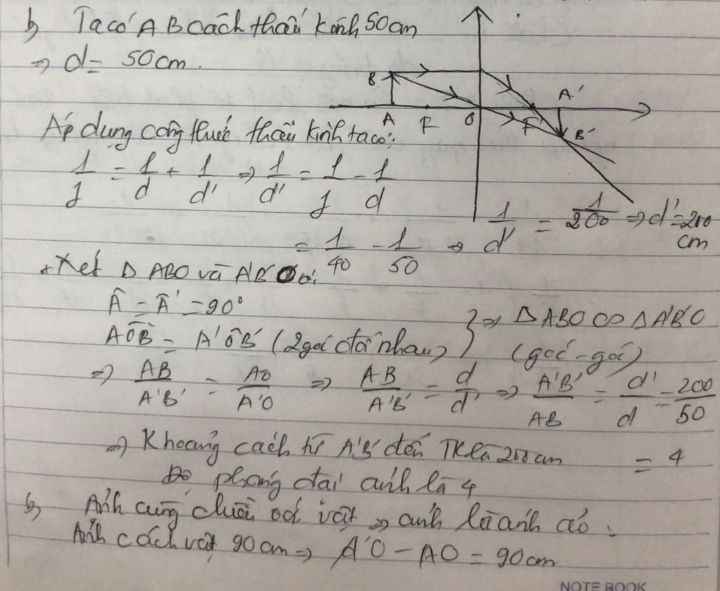 b) Ta có AB cách thấu kính 50cm
=> d = 50cm.
B A F O F' A' B'
Áp dụng công thức thấu kính ta có:
1/f = 1/d + 1/d' => 1/d' = 1/f - 1/d
= 1/40 - 1/50 => 1/d' = 1/200 => d' = 200 cm
+ Xét Δ ABO và A'B'O có:
Â = Â' = 90°
AÔB = A'ÔB' (2 góc đối nhau) } => Δ ABO ∽ Δ A'B'O (góc-góc)
=> AB/A'B' = AO/A'O => AB/A'B' = d/d' => A'B'/AB = d'/d = 200/50
=> Khoảng cách từ A'B' đến TK là 200cm = 4
Độ phóng đại ảnh là 4
b) Ảnh cùng chiều với vật => ảnh là ảnh ảo.
Ảnh cách vật 90cm => A'O - AO = 90cm
NOTE BOOK